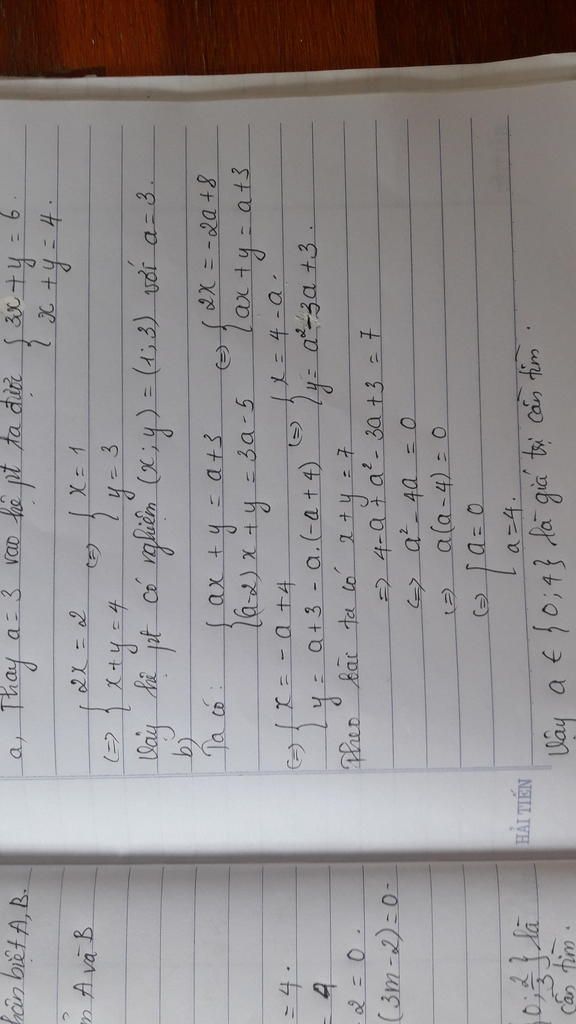 a, Thay a = 3 vào hệ pt ta được { 3x + y = 6.
x + y = 4.
(=) { 2x = 2
x + y = 4 (=) { x = 1
y = 3
Vậy hệ pt có nghiệm (x; y) = (1; 3) với a = 3.
b)
Ta có: { ax + y = a + 3
(a-2)x + y = 3a - 5 (=) { 2x = -2a + 8
ax + y = a + 3
(=) { x = -a + 4
y = a + 3 - a.(-a + 4) (=) { x = 4 - a.
y = a² - 3a + 3.
Theo bài ta có x + y = 7
=> 4 - a + a² - 3a + 3 = 7
(=) a² - 4a = 0
(=) a(a - 4) = 0
(=) { a = 0
a = 4.
Vậy a ∈ {0; 4} là giá trị cần tìm.
HẢI TIẾN
phân biệt A, B.
A và B
= 4.
= 4
2 = 0.
(3m - 2) = 0
0; 2/3 } là
cần tìm.